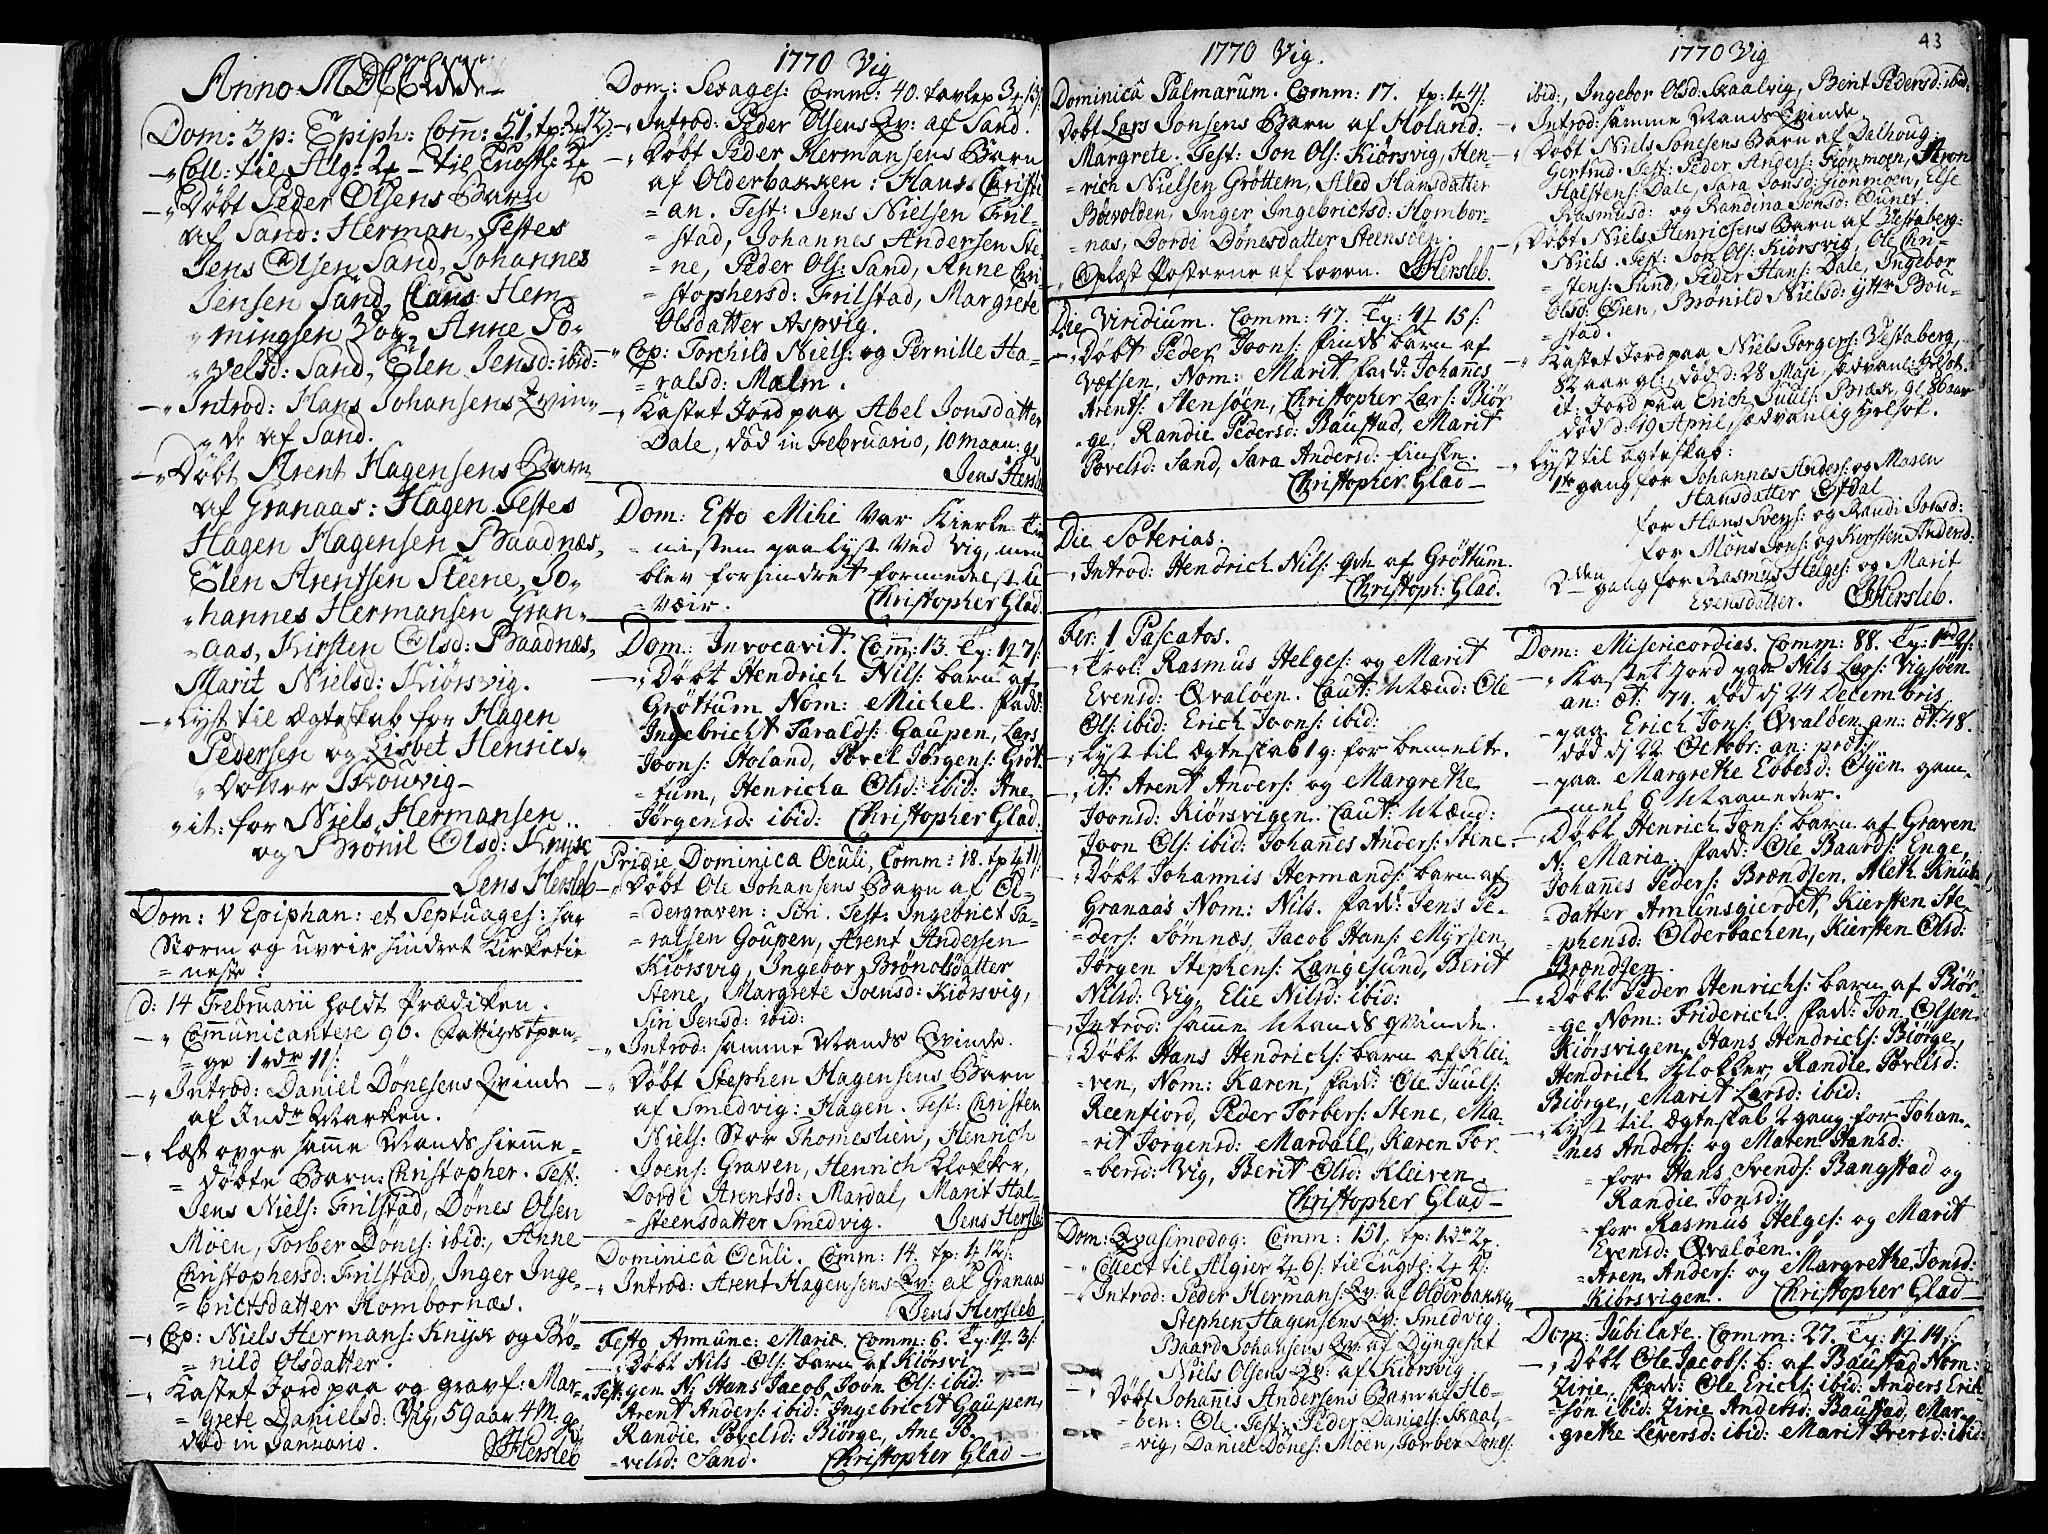 Anno MDCCLXX
Dom: 3 p: Epiph: Com̅: 51, tp: 2 12
Coll: til Alg: 24 - til Tugtt: 24
Döbt Peder Olsens Barn
af Sand: Herman. Testes
Jens Olsen Sand, Johannes
Jensen Sand, Claus Hem-
mingsen Vog, Anne Po-
velsd: Sand, Elen Jensd: ibid:
Introd: Hans Johansens Qvin-
de af Sand.
Döbt Arent Hagensens Barn
af Granaas: Hagen. Testes
Hagen Hagensen Baadnæs,
Elen Arentsen Steene, Jo-
hannes Hermansen Gran-
aas, Kirsten Olsd: Baadnæs,
Marit Nielsd: Kiörsvig.
Lyst til Ægteskab for Hagen
Pedersen og Lisbet Henrics-
Datter Skouvig
it: for Niels Hermansen
og Brönil Olsd: Knysc
Jens Hersleb
Dom: V Epiphan: et Septuages: har
Storm og uveir hindret Kirketie-
neste:
d: 14 Februarii holdt Prædiken.
Communicantere 96. Fattiges tpen-
ge 1 rdr 11 s:
Introd: Daniel Dönesens Qvinde
af Indr Marken.
Læst over samme Mands hiemme-
döbte Barn: Christopher. Test:
Jens Niels: Frilstad, Dönes Olsen
Möen, Torber Dönes: ibid:, Anne
Christophersd: Frilstad, Inger Inge-
brictsdatter Hombornæs.
Cop: Niels Hermans: Knysk og Brö-
nild Olsdatter.
Kastet Jord paa og gravf: Mar-
grete Danielsd: Vig, 59 aar 4 M. gl
död in Januario. JHersleb
1770 Vig
Dom: Sexages: Comm: 40. tavlep 34 13 s
Introd: Peder Olsens Qv: af Sand.
Döbt Peder Hermansens Barn
af Olderbakken: Hans Christi-
an. Test: Jens Nielsen Fril-
stad, Johannes Andersen Ste-
ne, Peder Ols: Sand, Anne Cri-
stophersd: Frilstad, Margrete
Olsdatter Aspvig.
Cop: Torchild Niels: og Pernille Ha-
ralsd: Malm.
Kastet Jord paa Abel Jonsdatter
Dale, död in Februario, 10 maan: gl
Jens Hersleb
Dom: Esto Mihi var Kierke Tie-
nisten paalyst ved Vig, men
blev forhindret formedelst U-
væir. Christopher Glad.
Dom: Invocavit. Com̅: 13. Tp: 12 7 s:
Döbt Hendrich Nils: barn af
Gröttum Nom: Michel. fadd:
Ingebricht Taralds: Gaupen, Lars
Joons: Holand, Povel Jörgens: Gröt-
tum, Henricha Olsd: ibid: Ane
Jörgensd: ibid: Christopher Glad.
Pridie Dominica Oculi, Comm: 18. tp 4 11 s
Döbt Ole Johansens Barn af Ol-
dergraven: Siri. Test: Ingebrict Ta-
ralsen Goupen, Arent Andersen
Kiörsvig, Ingebor Brönolsdatter
Stene, Margrete Joensd: Kiörsvig,
Siri Jensd: ibid:
Introd: samme Mands Qvinde.
Döbt Stephen Hagensens Barn
af Smedvig: Hagen. Test: Christen
Niels: Stor Thomeslien, Henrich
Joens: Graven, Henrich Klokker,
Dordi Arentsd: Mardal, Marit Hal-
steensdatter Smedvig. Jens Hersleb
Dominica Oculi. Comm: 14. tp: 4 12 s:
Introd: Arent Hagensens Qv: af Granaas
Jens Hersleb
Festo Annunc: Mariæ. Comm: 6. Tp: 12 3 s:
Döbt Nils Ols: barn af Kiörsvi-
gen N: Hans Jacob, Joon Ols: ibid:
Test: Arent Anders: ibid: Ingebricht Gaupen,
Randie Povelsd: Biörge, Ane Po-
velsd: Sand. Christopher Glad
1770 Vig.
Dominica Palmarum. Comm: 17. tp: 4 4 s:
Döbt Lars Jonsens Barn af Holand:
Margrete. Test: Jon Ols: Kiörsvig, Hen-
rich Nielsen Gröttem, Aled Hansdatter
Bövolden, Inger Ingebrictsd: Hombor-
nas, Dordi Dönesdatter Steensöen.
Oplæst Posterne af Loven. JHersleb.
Die Viridium. Comm: 47. Tp: 42 15 s:
Döbt Peder Joons: finds barn af
Væfsen, Nom: Marit. fadd: Johannes
Arents: Stensöen, Christopher Lars: Biör-
ge, Randie Pedersd: Baustad, Marit
Povelsd: Sand, Sara Andersd: finske.
Christopher Glad
Die Soterias.
Introd: Hendrich Nils: qvh af Gröttum.
Christoph: Glad.
Fer: 1 Pascatos.
Trol: Rasmus Helges: og Marit
Evensd: Qvalöen. Caut: Mænd: Ole
Ols: ibid: Erich Joons: ibid:
Lyst til Ægteskab 1 g: for bemelte.
it: Arent Anders: og Margrethe
Joonsd: Kiörsvigen. Caut: Mænd:
Joon Ols: ibid: Johannes Anders: Stene.
Döbt Johannis Hermands: barn af
Granaas Nom: Nils. fadd: Jens Pe-
ders: Sömnæs, Jacob Hans: Myrsen,
Jörgen Stephens: Langesund, Berit
Nilsd: Vig, Elie Nilsd: ibid:
Introd: samme Mands qvinde.
Döbt Hans Hendrichs: barn af Klei-
ven, Nom: Karen, fadd: Ole Juuls:
Reenfiord, Peder Torbers: Stene, Ma-
rit Jörgensd: Mardall, Karen Tor-
bersd: Vig, Berit Olsd: Kleiven.
Christopher Glad
Dom: Qvasimodog: Comm: 151, tp: 1 rdr 2.
Collect til Algier 24 6 s: til Tugts: 24 2 s:
Introd: Peder Hermans: Qv: af Olderbakken
Stephen Hagensens Qv: Smedvig.
Baard Johansens Qv: af Dyngesat
Niels Olsens Qv: af Kiörsvig
Döbt Johannis Andersens Barn af Ho-
ben: Ole. Test: Peder Daniels: Skaal-
vig, Daniel Dönes: Möen, Torber Dönes:
1770 Vig
43
ibid:, Ingebor Olsd: Skaalvig, Berit Pedersd: ibid,
Introd: samme Mands Qvinde
Döbt Niels Jonesens Barn af Dalhoug:
Gertrud. Test: Peder Anders: Giönmoen, Aron
Halstens: Dale, Sara Jonsd: Giönmoen, Else
Rasmusd: og Randina Jonsd: Ouner.
Döbt Niels Henricsens Barn af Vestaberg:
Niels. Test: Jon Ols: Kiörsvig, Ole Chri-
stens: Sund, Peder Hans: Dale, Ingebor
Olsd: Öien, Brönild Nielsd: ytter Bou-
stad.
Kastet Jord paa Niels Jörgens: Vestaberg,
82 aar gl:, död d: 28 Maji, sædvanl: Helsot.
it: Jord paa Erich Juuls: Bræk, gl 86 aar
död d: 19 April, sædvanlig Helsot.
Lyst til Ægteskab:
1te gang for Johannes Anders: og Maren
Hansdatter Eytdal
for Hans Svens: og Randi Jonsd:
for Möns Jons: og Kirsten Andersd:
2den gang for Rasmus Helges: og Marit
Evensdatter. JHersleb.
Dom: Misericordias. Comm: 88. Tp: 1 rd 2 s:
Kastet Jord paa Nils Lars: Vigsöen
an: æt: 74. död d 24 Decembris
paa Erich Jons: Qvalöen an: æt: 48.
död d 22 Octobr: an: præt:
paa Margrethe Ebbesd: Öyen gam-
mel 6 Maaneder.
Döbt Henrich Jons: barn af Graven
N: Maria. fadd: Ole Baards: Enge,
Johannes Peders: Brændsen, Aleth Knuts-
datter Amunsgierdet, Kiersten Ste-
phensd: Olderbachen, Kiersten Olsd:
Brændsen.
Döbt Peder Henrichs: barn af Biör-
ge Nom: Friderich. fadd: Jon Olsen
Kiörsvigen, Hans Hendrichs: Biörge,
Hendrich Klokker, Randie Povelsd:
Biörge, Marit Larsd: ibid:
Lyst til Ægteskab 2 gang for Johan-
nes Anders: og Maren Hansd:
for Hans Svends: Bangstad og
Randie Jonsd:
for Rasmus Helges: og Marit
Evensd: Qvalöen.
Aren Anders: og Margrethe Jonsd:
Kiörsvigen. Christopher Glad
Dom: Jubilate. Comm: 27. Tp: 12 14 s:
Döbt Ole Jacobs: b: af Baustad Nom:
Zirie. fadd: Ole Erichs: ibid: Anders Erich-
sön ibid: Zirie Andersd: Baustad, Mar-
grethe Leversd: ibid: Marit Iversd: ibid: